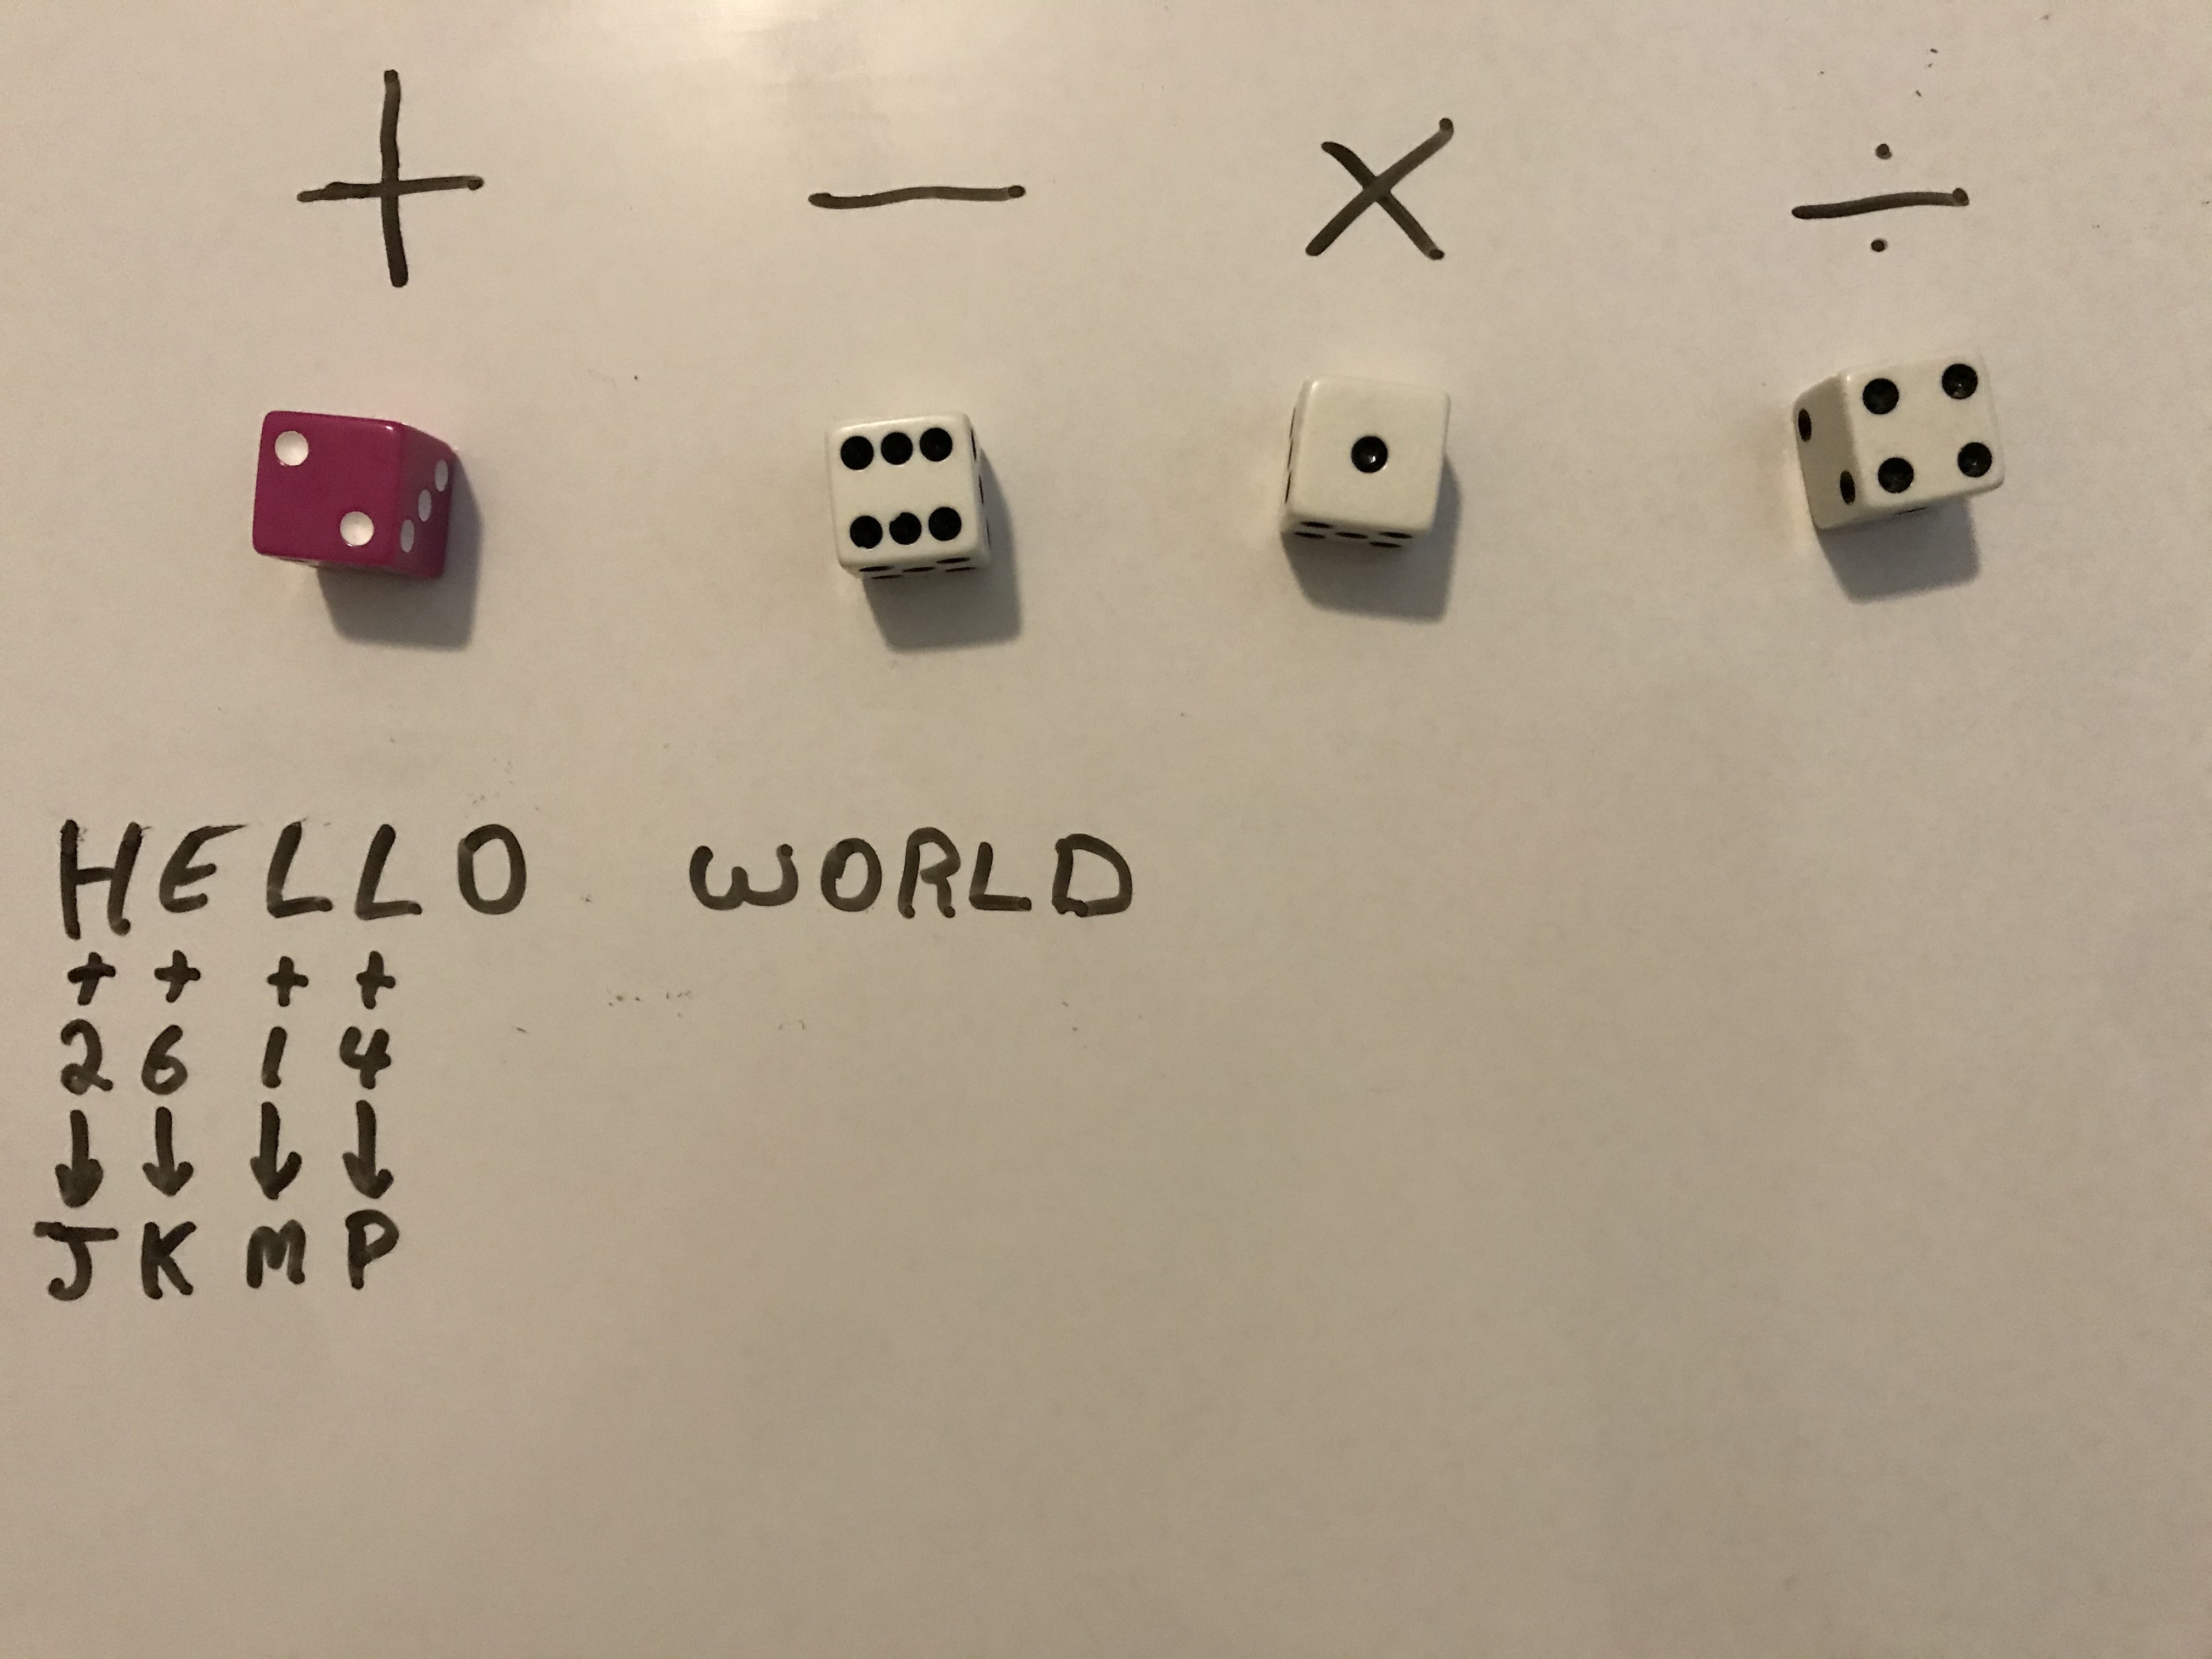 + − × ÷
HELLO WORLD
+ + + +
2 6 1 4
↓ ↓ ↓ ↓
J K M P